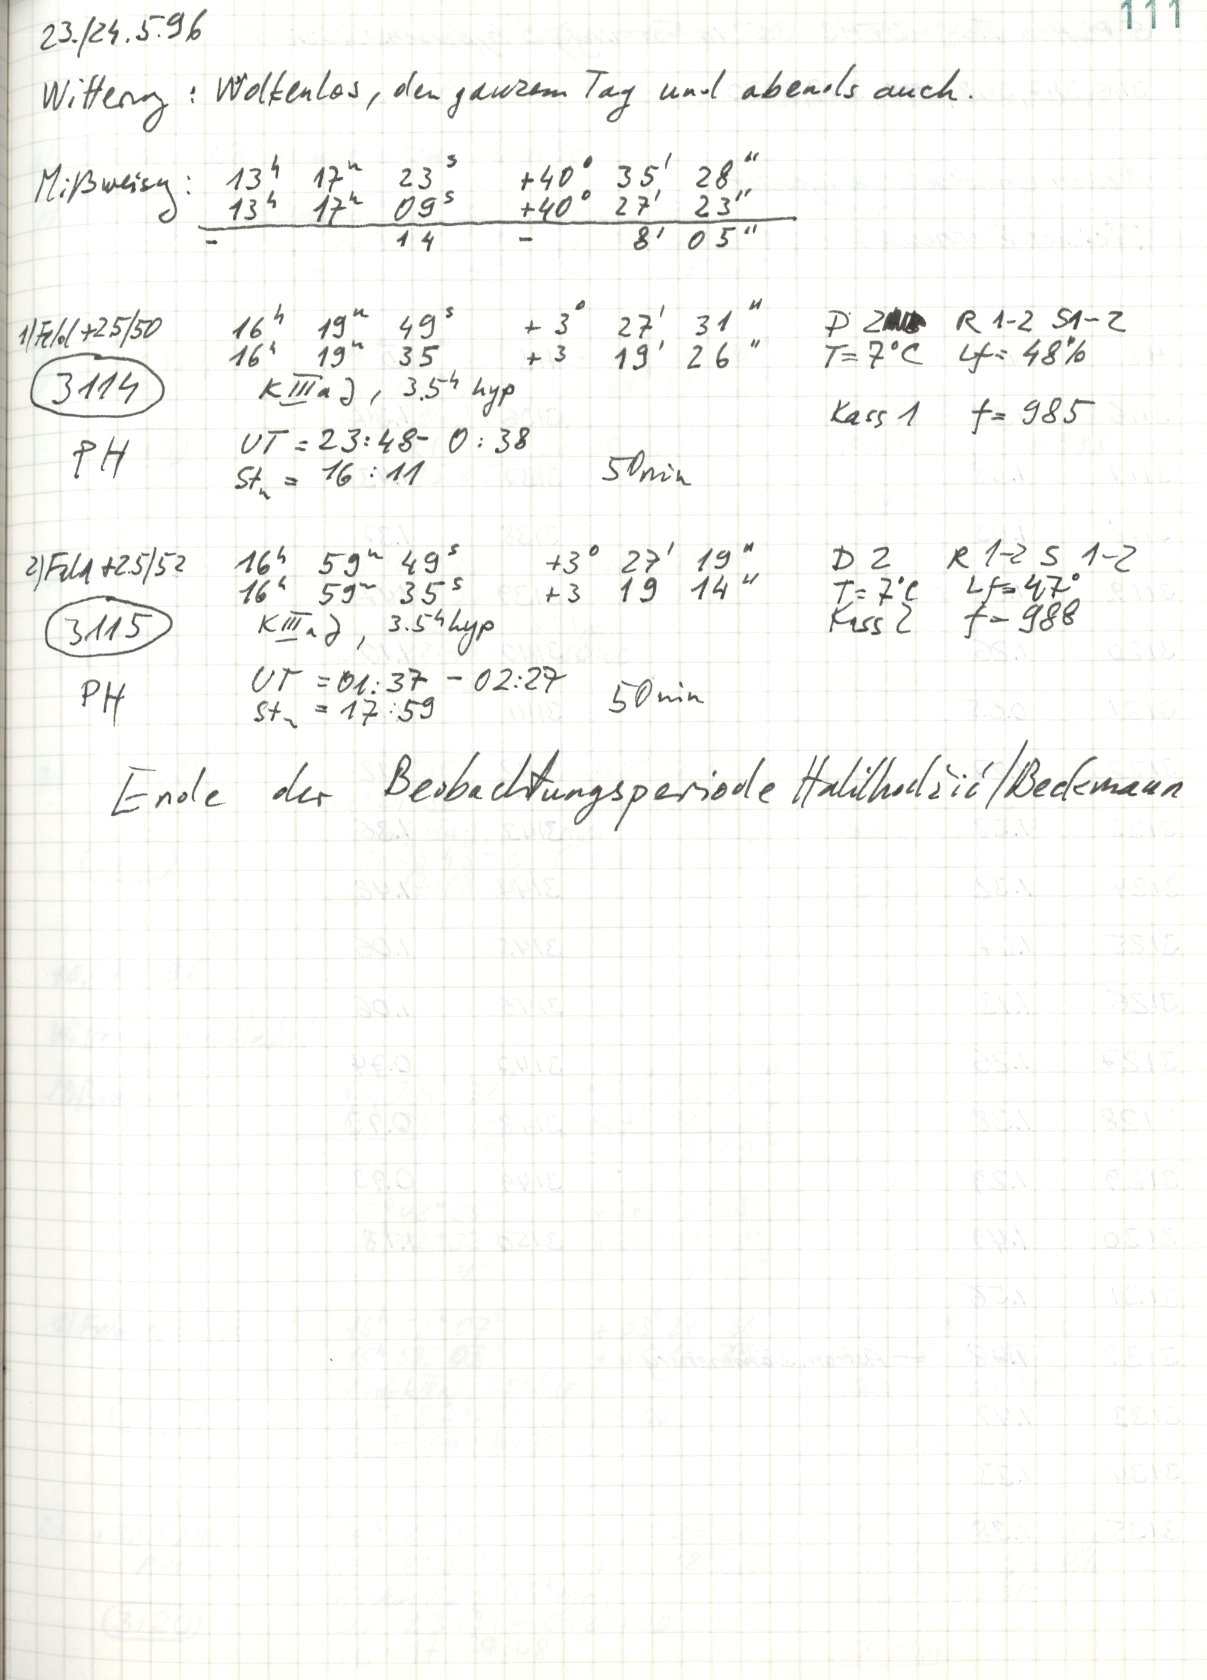 111
23./24.5.96
Witterung: Wolkenlos, den ganzem Tag und abends auch.
Mißweisung: 13h 17m 23s +40° 35' 28"
13h 17m 09s +40° 27' 23"
- 14 - 8' 05"
1) Feld +25/50 16h 19m 49s +3° 27' 31" D 2 R 1-2 S1-2
16h 19m 35 +3 19' 26" T=7°C Lf=48%
3114 KIIIaJ, 3.5h hyp
Kass 1 f=985
PH UT = 23:48- 0:38
Stn = 16:11 50min
2) Feld +25/52 16h 59m 49s +3° 27' 19" D 2 R 1-2 S 1-2
16h 59m 35s +3 19 14" T=7°C Lf=47°
3115 KIIIaJ, 3.5h hyp Kass 2 f=988
PH UT = 01:37 - 02:27
Stn = 17:59 50min
Ende der Beobachtungsperiode Halilhodžić/Beckmann